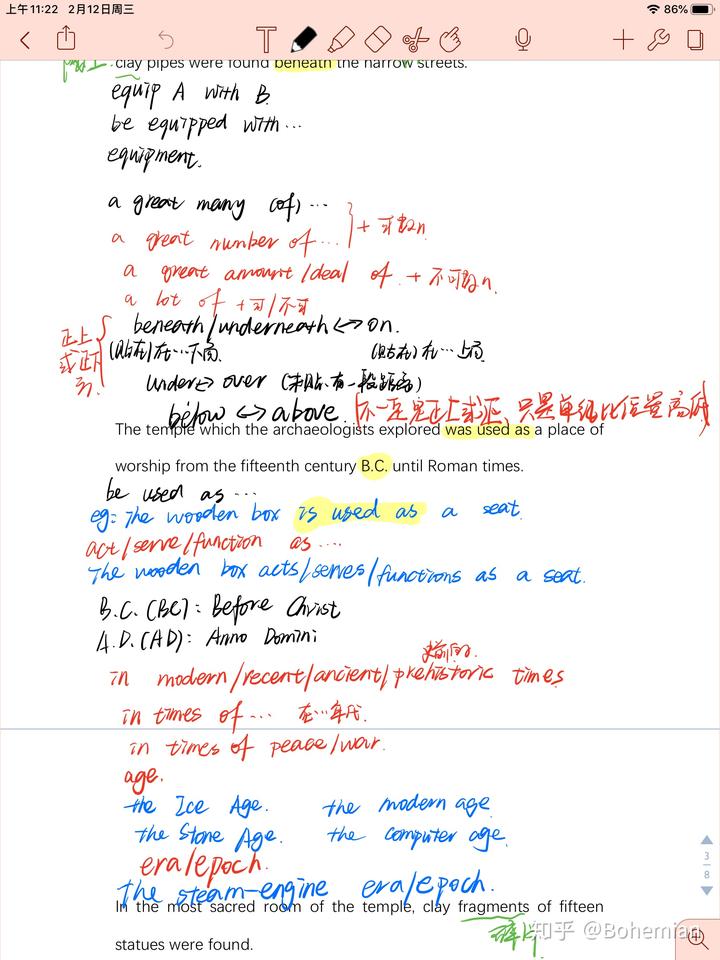 上午11:22 2月12日周三 86%
陶土 clay pipes were found beneath the narrow streets.
equip A with B
be equipped with...
equipment.
a great many (of) ...
a great number of ... } + 可数n
a great amount/deal of + 不可数n.
a lot of + 可/不可
beneath/underneath <-> on.
正上或正下方
(贴在)在…下面. (贴在)在…上面
under <-> over (未贴.有一段距离)
below <-> above. 不一定是正上或正下,只是单纯比位置高低
The temple which the archaeologists explored was used as a place of
worship from the fifteenth century B.C. until Roman times.
be used as ...
eg: The wooden box is used as a seat.
act/serve/function as ....
The wooden box acts/serves/functions as a seat.
B.C. (BC): Before Christ
A.D. (AD): Anno Domini
史前的.
in modern/recent/ancient/prehistoric times
in times of ... 在…年代.
in times of peace/war.
age.
the Ice Age. the modern age
the Stone Age. the computer age.
era/epoch.
the steam-engine era/epoch.
In the most sacred room of the temple, clay fragments of fifteen
碎片
statues were found.
3
8
知乎 @Bohemian